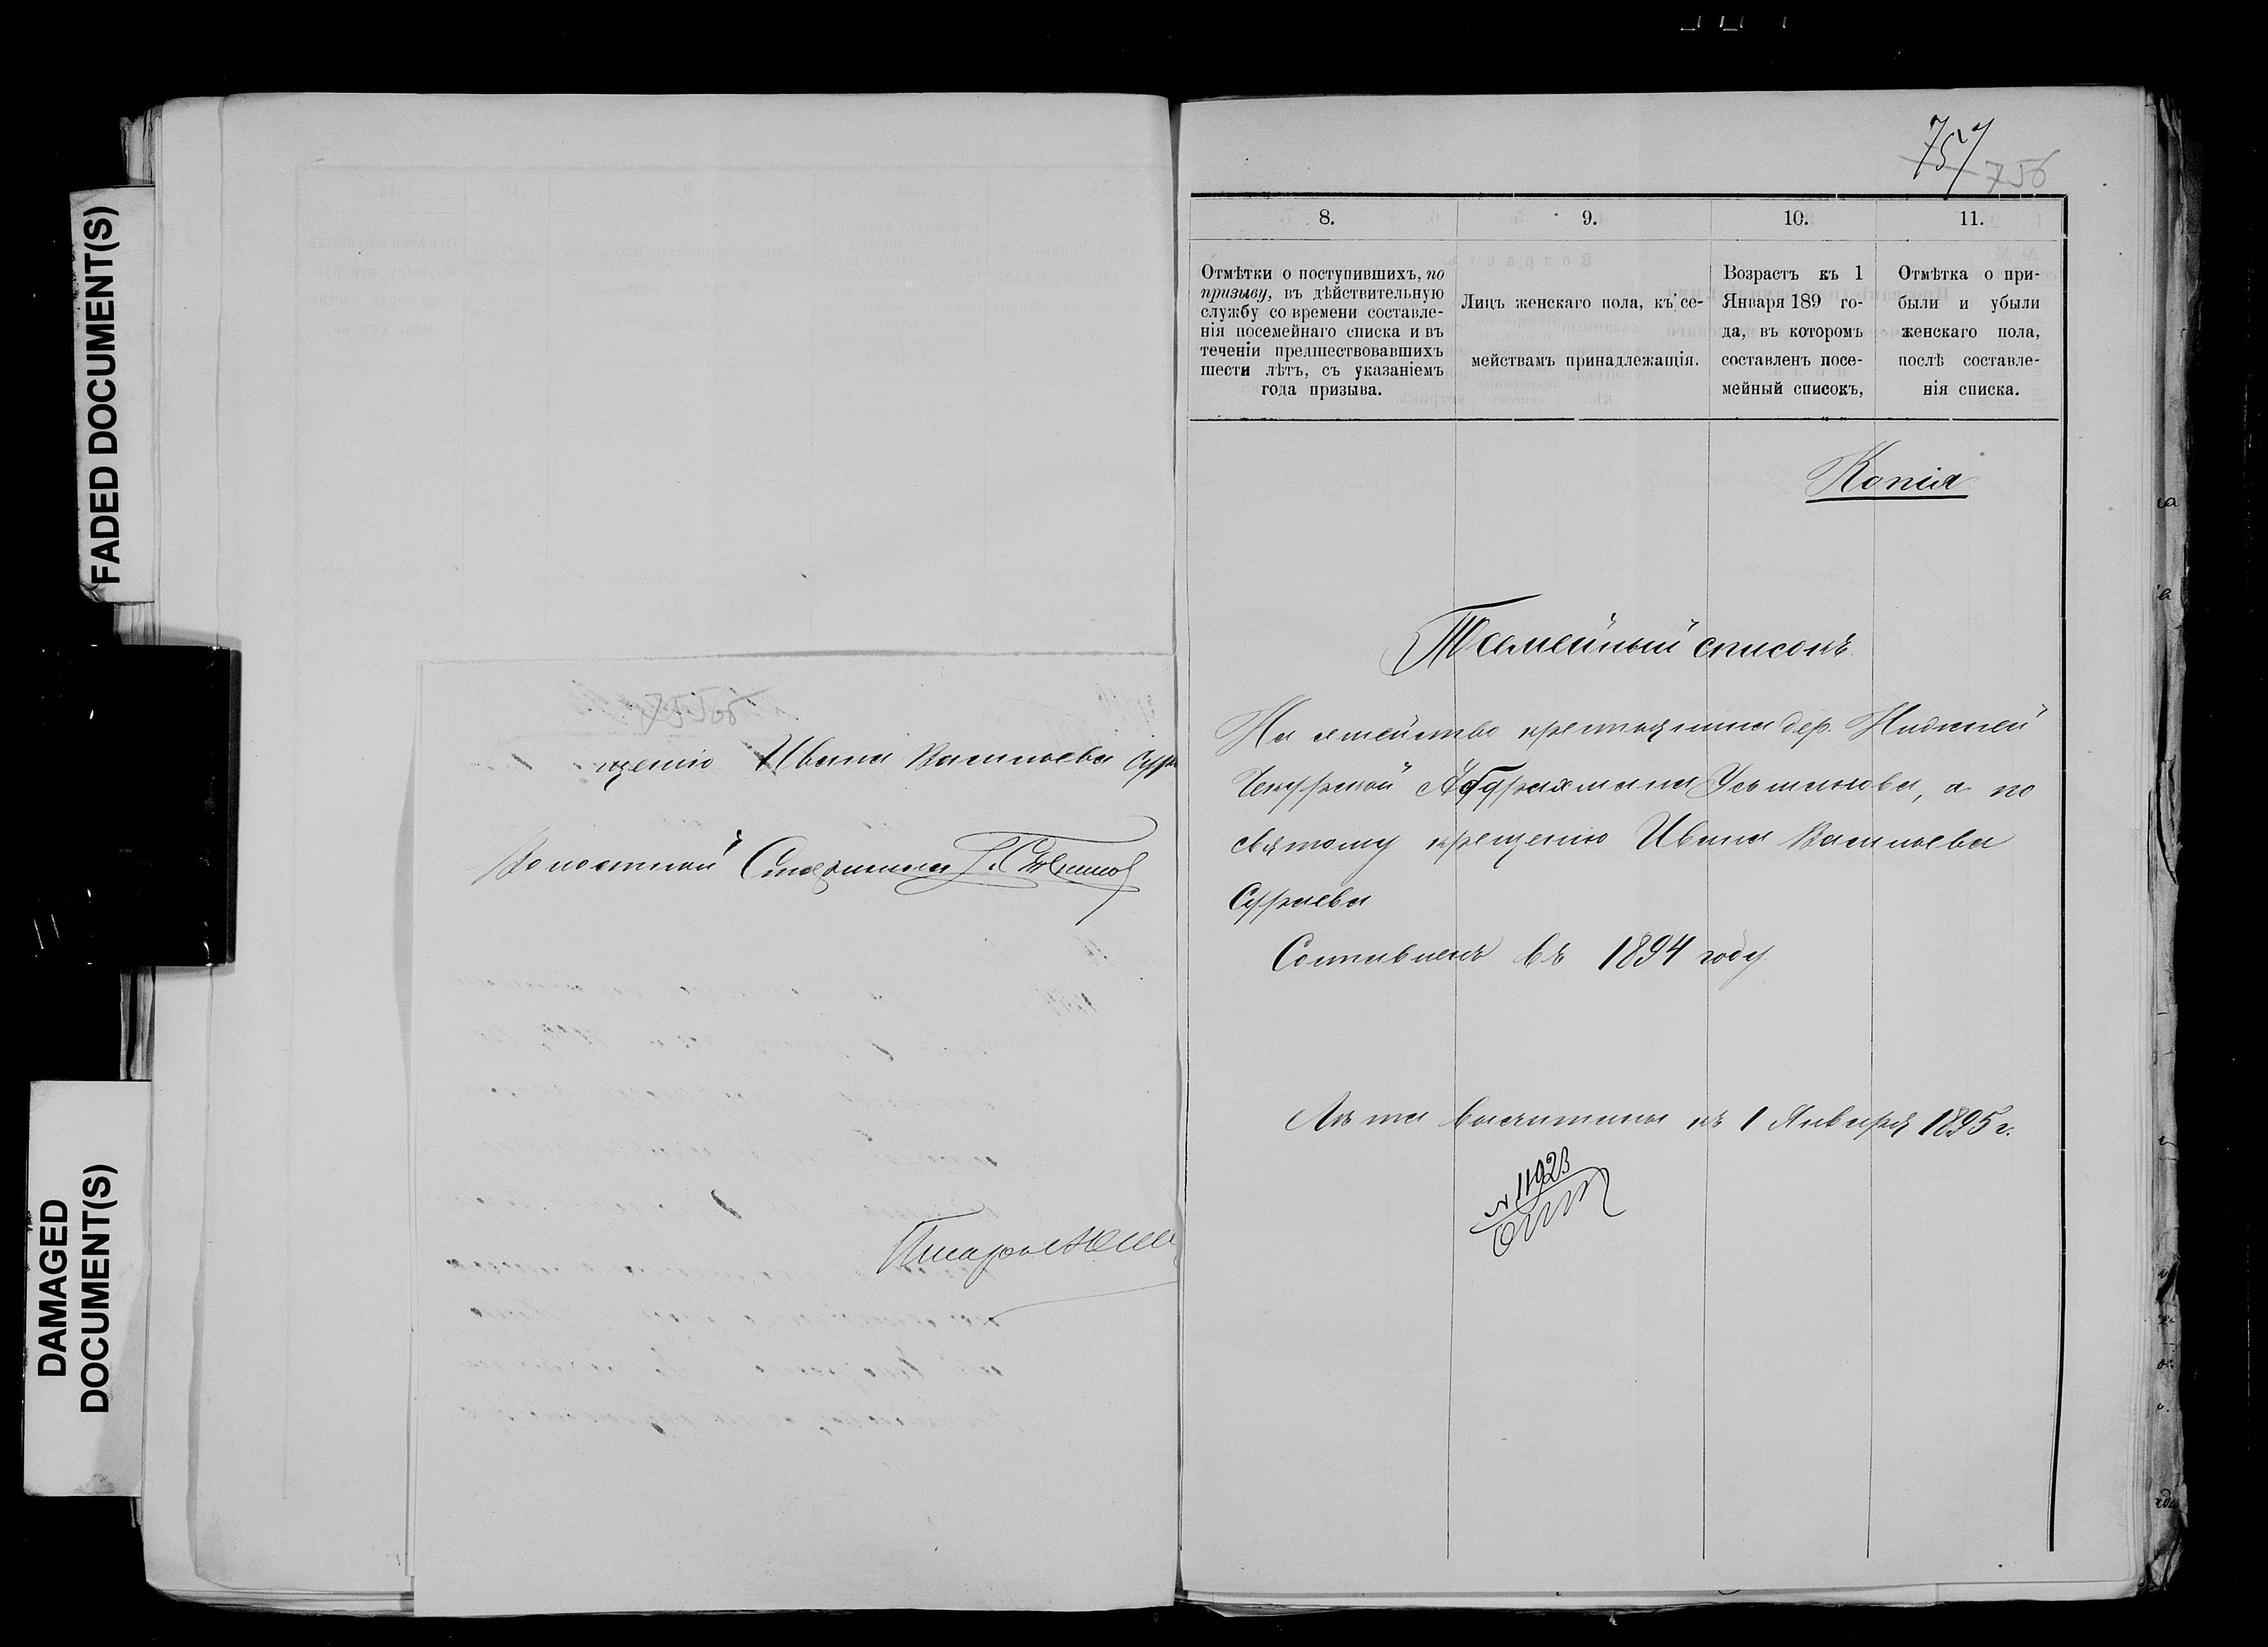 FADED DOCUMENT(S)
DAMAGED
DOCUMENT(S)
щенію Ивана Васильева Сур
Волостной Старшина
Писарь
757
756
8.
9.
10.
11.
Отмѣтки о поступившихъ, по
призыву, въ дѣйствительную
службу со времени составле-
нія посемейнаго списка и въ
теченіи предшествовавшихъ
шести лѣтъ, съ указаніемъ
года призыва.
Лицъ женскаго пола, къ се-
мействамъ принадлежащія.
Возрастъ къ 1
Января 189 го-
да, въ которомъ
составленъ посе-
мейный списокъ,
Отмѣтка о при-
были и убыли
женскаго пола,
послѣ составле-
нія списка.
Копія
Посемейный списокъ
На семейство крестьянина дер. Нижней
Чекурской Абдрахмана Усманова, а по
святому крещенію Ивана Васильева
Сураева
Составленъ въ 1894 году
Лѣта высчитаны къ 1 Января 1895 г.
№ 11923